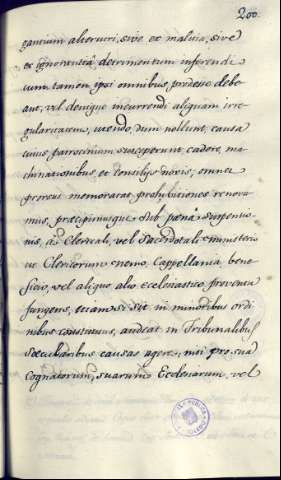 200.
gantium alteruri, sive ex malitia, sive
ex ignorantia detrimentum inferendi
cum tamen ipsi omnibus, prodesse debe
ant, vel denique incurrendi aliquam irre
gularitatem, utendo dum pollunt, causa
cuius patrocinium susceperunt cadere, ma
chinationibus, et consilijs noxris, omnes
prorsus memoratas prohibitiones renova
mus, præcipimusque sub pœna suspensio
nis, a Clericali, vel Sacerdotali ministerio
ut Clericorum nemo Cappellania, bene
ficio, vel aliquo alio ecclesiastico proventu
fungens, etiam si sit in minoribus ordi
nibus constitutus, audeat in Tribunalibus
Sæcularibus causas agere, nisi pro sua
Cognatorum, suarumve Ecclesiarum, vel